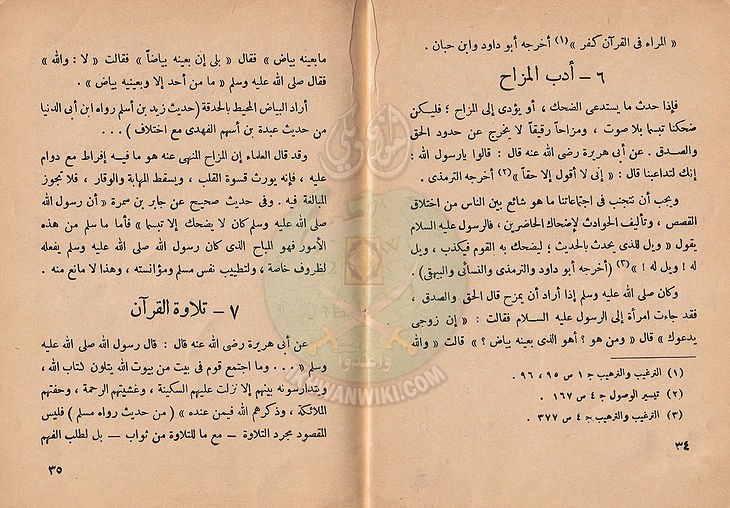 « المراء فى القرآن كفر »(١) أخرجه أبو داود وابن حبان .
٦ — أدب المزاح
فإذا حدث ما يستدعى الضحك ، أو يؤدى إلى المزاح ؛ فليكن
ضحكنا تبسما بلا صوت ، ومزاحاً رقيقاً لا يخرج عن حدود الحق
والصدق . عن أبى هريرة رضى الله عنه قال : قالوا يارسول الله :
إنك لتداعبنا قال : « إنى لا أقول إلا حقاً »(٢) أخرجه الترمذى .
ويجب أن نتجنب فى اجتماعاتنا ما هو شائع بين الناس من اختلاق
القصص ، وتأليف الحوادث لإضحاك الحاضرين ، فالرسول عليه السلام
يقول « ويل للذى يحدث بالحديث ؛ ليضحك به القوم فيكذب ، ويل
له ! ويل له ! »(٣) (أخرجه أبو داود والترمذى والنسائى والبيهقى) .
وكان صلى الله عليه وسلم إذا أراد أن يمزح قال الحق والصدق ،
فقد جاءت امرأة إلى الرسول عليه السلام فقالت : « إن زوجى
يدعوك » قال « ومن هو ؟ أهو الذى بعينه بياض ؟ » قالت « والله
(١) الترغيب والترهيب ج ١ ص ٩٥ ، ٩٦ .
(٢) تيسير الوصول ج ٤ ص ١٦٧ .
(٣) الترغيب والترهيب ج ٤ ص ٣٧٧ .
٣٤
مابعينه بياض » فقال « بلى إن بعينه بياضاً » فقالت « لا : والله »
فقال صلى الله عليه وسلم « ما من أحد إلا وبعينيه بياض » .
أراد البياض المحيط بالحدقة (حديث زيد بن أسلم رواه ابن أبى الدنيا
من حديث عبدة بن أسهم الفهدى مع اختلاف ) . . .
وقد قال العلماء إن المزاح المنهى عنه هو ما فيه إفراط مع دوام
عليه ، فإنه يورث قسوة القلب ، ويسقط المهابة والوقار ، فلا تجوز
المبالغة فيه . وفى حديث صحيح عن جابر بن سمرة « أن رسول الله
صلى الله عليه وسلم كان لا يضحك إلا تبسما » فأما ما سلم من هذه
الأمور فهو المباح الذى كان رسول الله صلى الله عليه وسلم يفعله
لظروف خاصة ، ولتطييب نفس مسلم ومؤانسته ، وهذا لا مانع منه .
٧ — تلاوة القرآن
عن أبى هريرة رضى الله عنه قال : قال رسول الله صلى الله عليه
وسلم « . . . وما اجتمع قوم فى بيت من بيوت الله يتلون كتاب الله ،
ويتدارسونه بينهم إلا نزلت عليهم السكينة ، وغشيتهم الرحمة ، وحفتهم
الملائكة ، وذكرهم الله فيمن عنده » ( من حديث رواه مسلم ) فليس
المقصود مجرد التلاوة — مع ما للتلاوة من ثواب — بل لطلب الفهم
٣٥
وأعدوا
IKHWANWIKI.COM